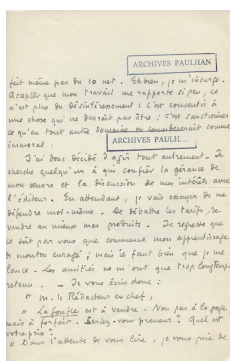 ARCHIVES PAULHAN
fait même pas du 10 net. Eh bien, je m'insurge.
Accepter que mon travail me rapporte si peu, ce
n'est plus du désintéressement : c'est consentir à
une chose qui ne devrait pas être ; c'est sanctionner
ce qu'en tout autre domaine on considérerait comme
immoral.
ARCHIVES PAULH...
J'ai donc décidé d'agir tout autrement. Je
cherche quelqu'un à qui confier la gérance de
mon œuvre et la discussion de mes intérêts avec
l'éditeur. En attendant, je vais essayer de me
défendre moi-même. De débattre les tarifs, de
vendre au mieux mes produits. Je regrette que
ce soit par vous que commence mon apprentissage
de mouton enragé ; mais il faut bien que je me
lance. Les amitiés ne m'ont que trop longtemps
retenu. — Je vous écris donc :
" M. le Rédacteur en chef,
" La est à vendre. Non pas à la page
mais à forfait. Seriez-vous preneur ? Quel est
votre prix ?
" Dans l'attente de vous lire, je vous prie de